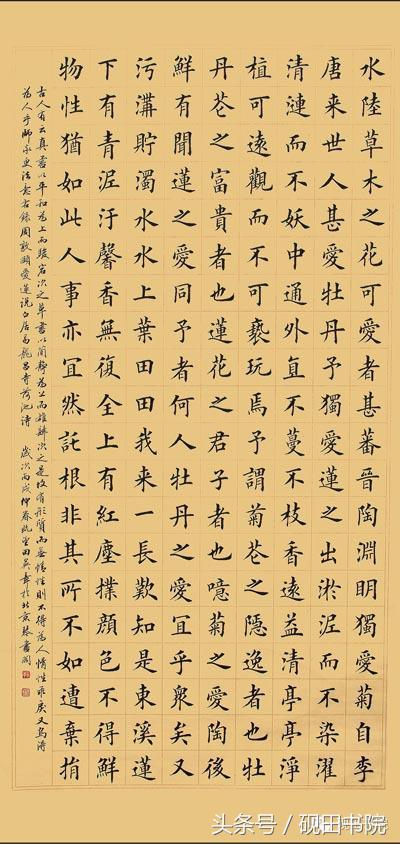 水陸草木之花可愛者甚蕃晉陶淵明獨愛菊自李
唐来世人甚愛牡丹予獨愛蓮之出淤泥而不染濯
清漣而不妖中通外直不蔓不枝香遠益清亭亭淨
植可遠觀而不可褻玩焉予謂菊花之隱逸者也牡
丹花之富貴者也蓮花之君子者也噫菊之愛陶後
鮮有聞蓮之愛同予者何人牡丹之愛宜乎衆矣又
污溝貯濁水水上葉田田我来一長歎知是東溪蓮
下有青泥汙馨香無復全上有紅塵撲顔色不得鮮
物性猶如此人事亦宜然託根非其所不如遭棄捐
古人有云真書以平和為上而駿宕次之草書以簡靜為上而雄辨次之是故有形質而無情性則不得為人情性乖戾又烏得
為人乎師承史法右録周敦頤愛蓮説白居易龍昌寺荷池詩 歲次丙戌仲春田英章於北京琴書閣
头条号/砚田书院